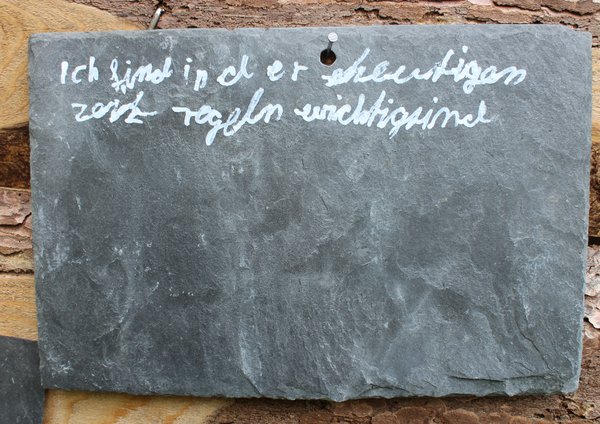 Ich find in d er heutigen
zeit regeln wichtigsind